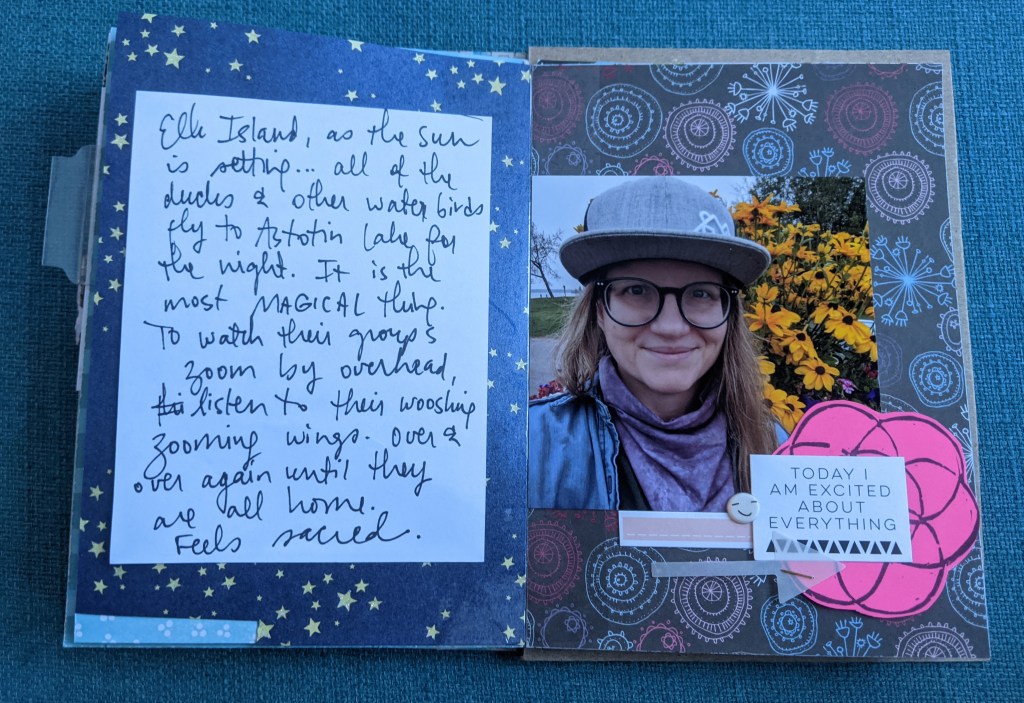 Elk Island, as the sun
is setting... all of the
ducks & other water birds
fly to Astotin Lake for
the night. It is the
most MAGICAL thing.
To watch their groups
zoom by overhead,
listen to their wooshing
zooming wings. Over &
over again until they
are all home.
Feels sacred.
TODAY I
AM EXCITED
ABOUT
EVERYTHING